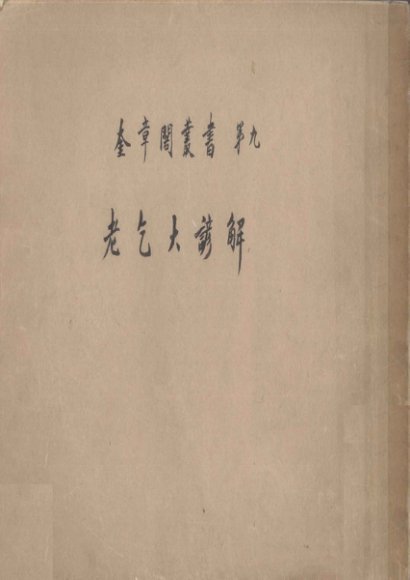 奎章閣叢書 第九
老乞大諺解